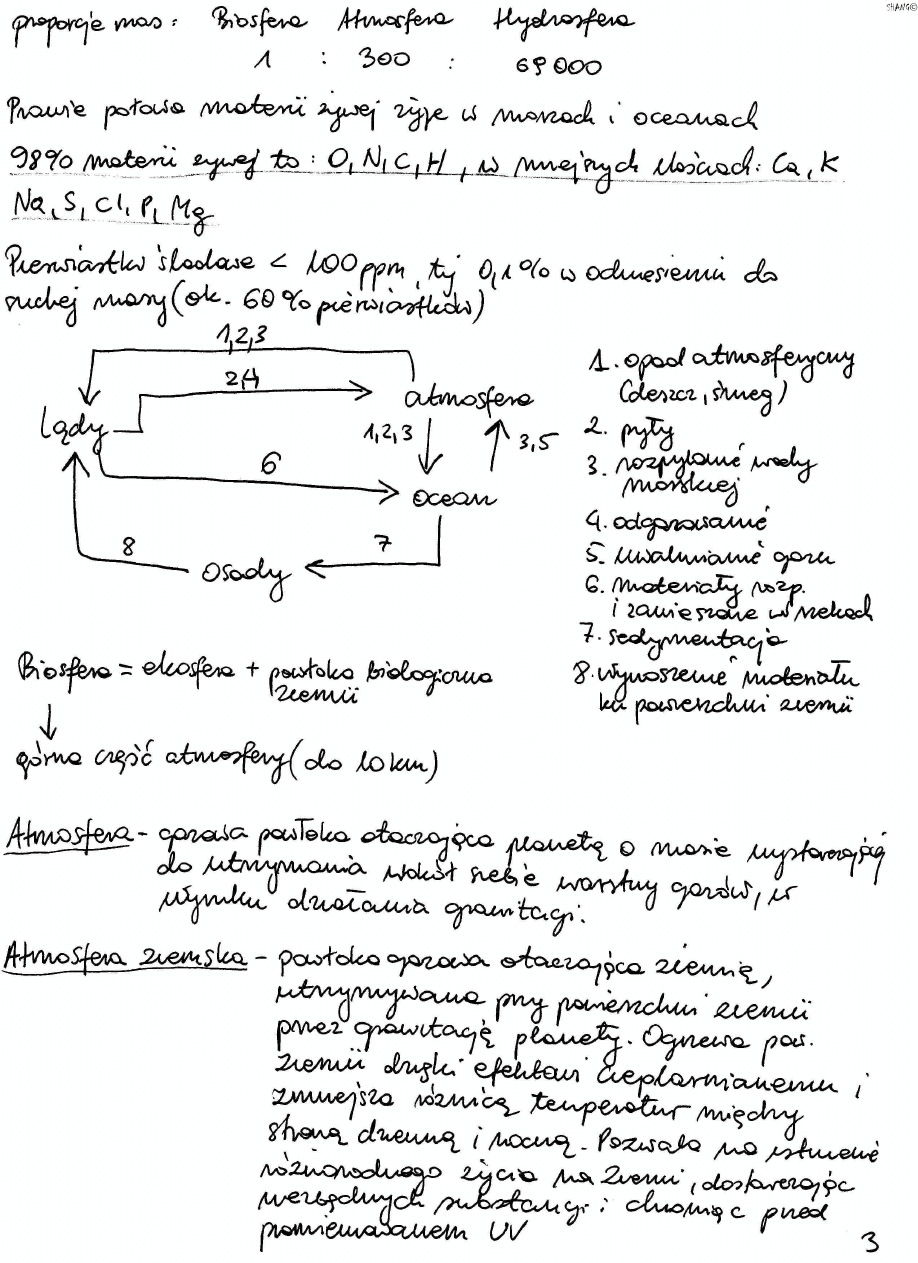 SHANG©
proporcje mas: Biosfera Atmosfera Hydrosfera
1 : 300 : 69000
Prawie połowa materii żywej żyje w morzach i oceanach
98% materii żywej to: O, N, C, H, w mniejszych ilościach: Ca, K
Na, S, Cl, P, Mg
Pierwiastki śladowe < 100 ppm, tj 0,1% w odniesieniu do
suchej masy (ok. 60% pierwiastków)
1,2,3
2,4
atmosfera
lądy
1,2,3
3,5
6
ocean
8
7
osady
1. opad atmosferyczny
(deszcz, śnieg)
2. pyły
3. rozpylanie wody
morskiej
4. odparowanie
5. uwalnianie gazu
6. materiały rozp.
i zawieszone w rzekach
7. sedymentacja
8. wynoszenie materiału
ku powierzchni ziemii
Biosfera = ekosfera + powłoka biologiczna
ziemii
górna część atmosfery (do 10 km)
Atmosfera - gazowa powłoka otaczająca planetę o masie wystarczającej
do utrzymania wokół siebie warstwy gazów, w
wyniku działania grawitacji.
Atmosfera ziemska - powłoka gazowa otaczająca ziemię,
utrzymywana przy powierzchni ziemii
przez grawitację planety. Ogrzewa pow.
ziemii dzięki efektowi cieplarnianemu i
zmniejsza różnicę temperatur między
stroną dzienną i nocną. Pozwala na istnienie
różnorodnego życia na Ziemi, dostarczając
niezbędnych substancji i chroniąc przed
promieniowaniem UV
3